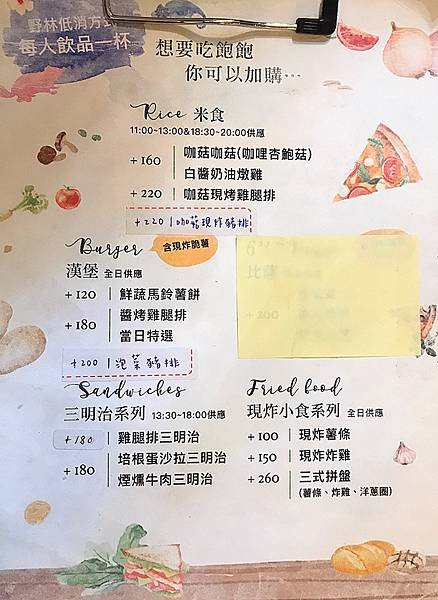 野林低消方式
每人飲品一杯
想要吃飽飽
你可以加購…
Rice 米食
11:00~13:00&18:30~20:00供應
+160 咖菇咖菇(咖哩杏鮑菇)
白醬奶油燉雞
+220 咖菇現烤雞腿排
+220 咖菇現炸豬排
Burger 含現炸脆薯
漢堡 全日供應
+120 鮮蔬馬鈴薯餅
+180 醬烤雞腿排
當日特選
+200 泡菜豬排
6"
比薩
+200
Sandwiches
三明治系列 13:30~18:00供應
+180 雞腿排三明治
+180 培根蛋沙拉三明治
煙燻牛肉三明治
Fried food
現炸小食系列 全日供應
+100 現炸薯條
+150 現炸炸雞
+260 三式拼盤
(薯條、炸雞、洋蔥圈)